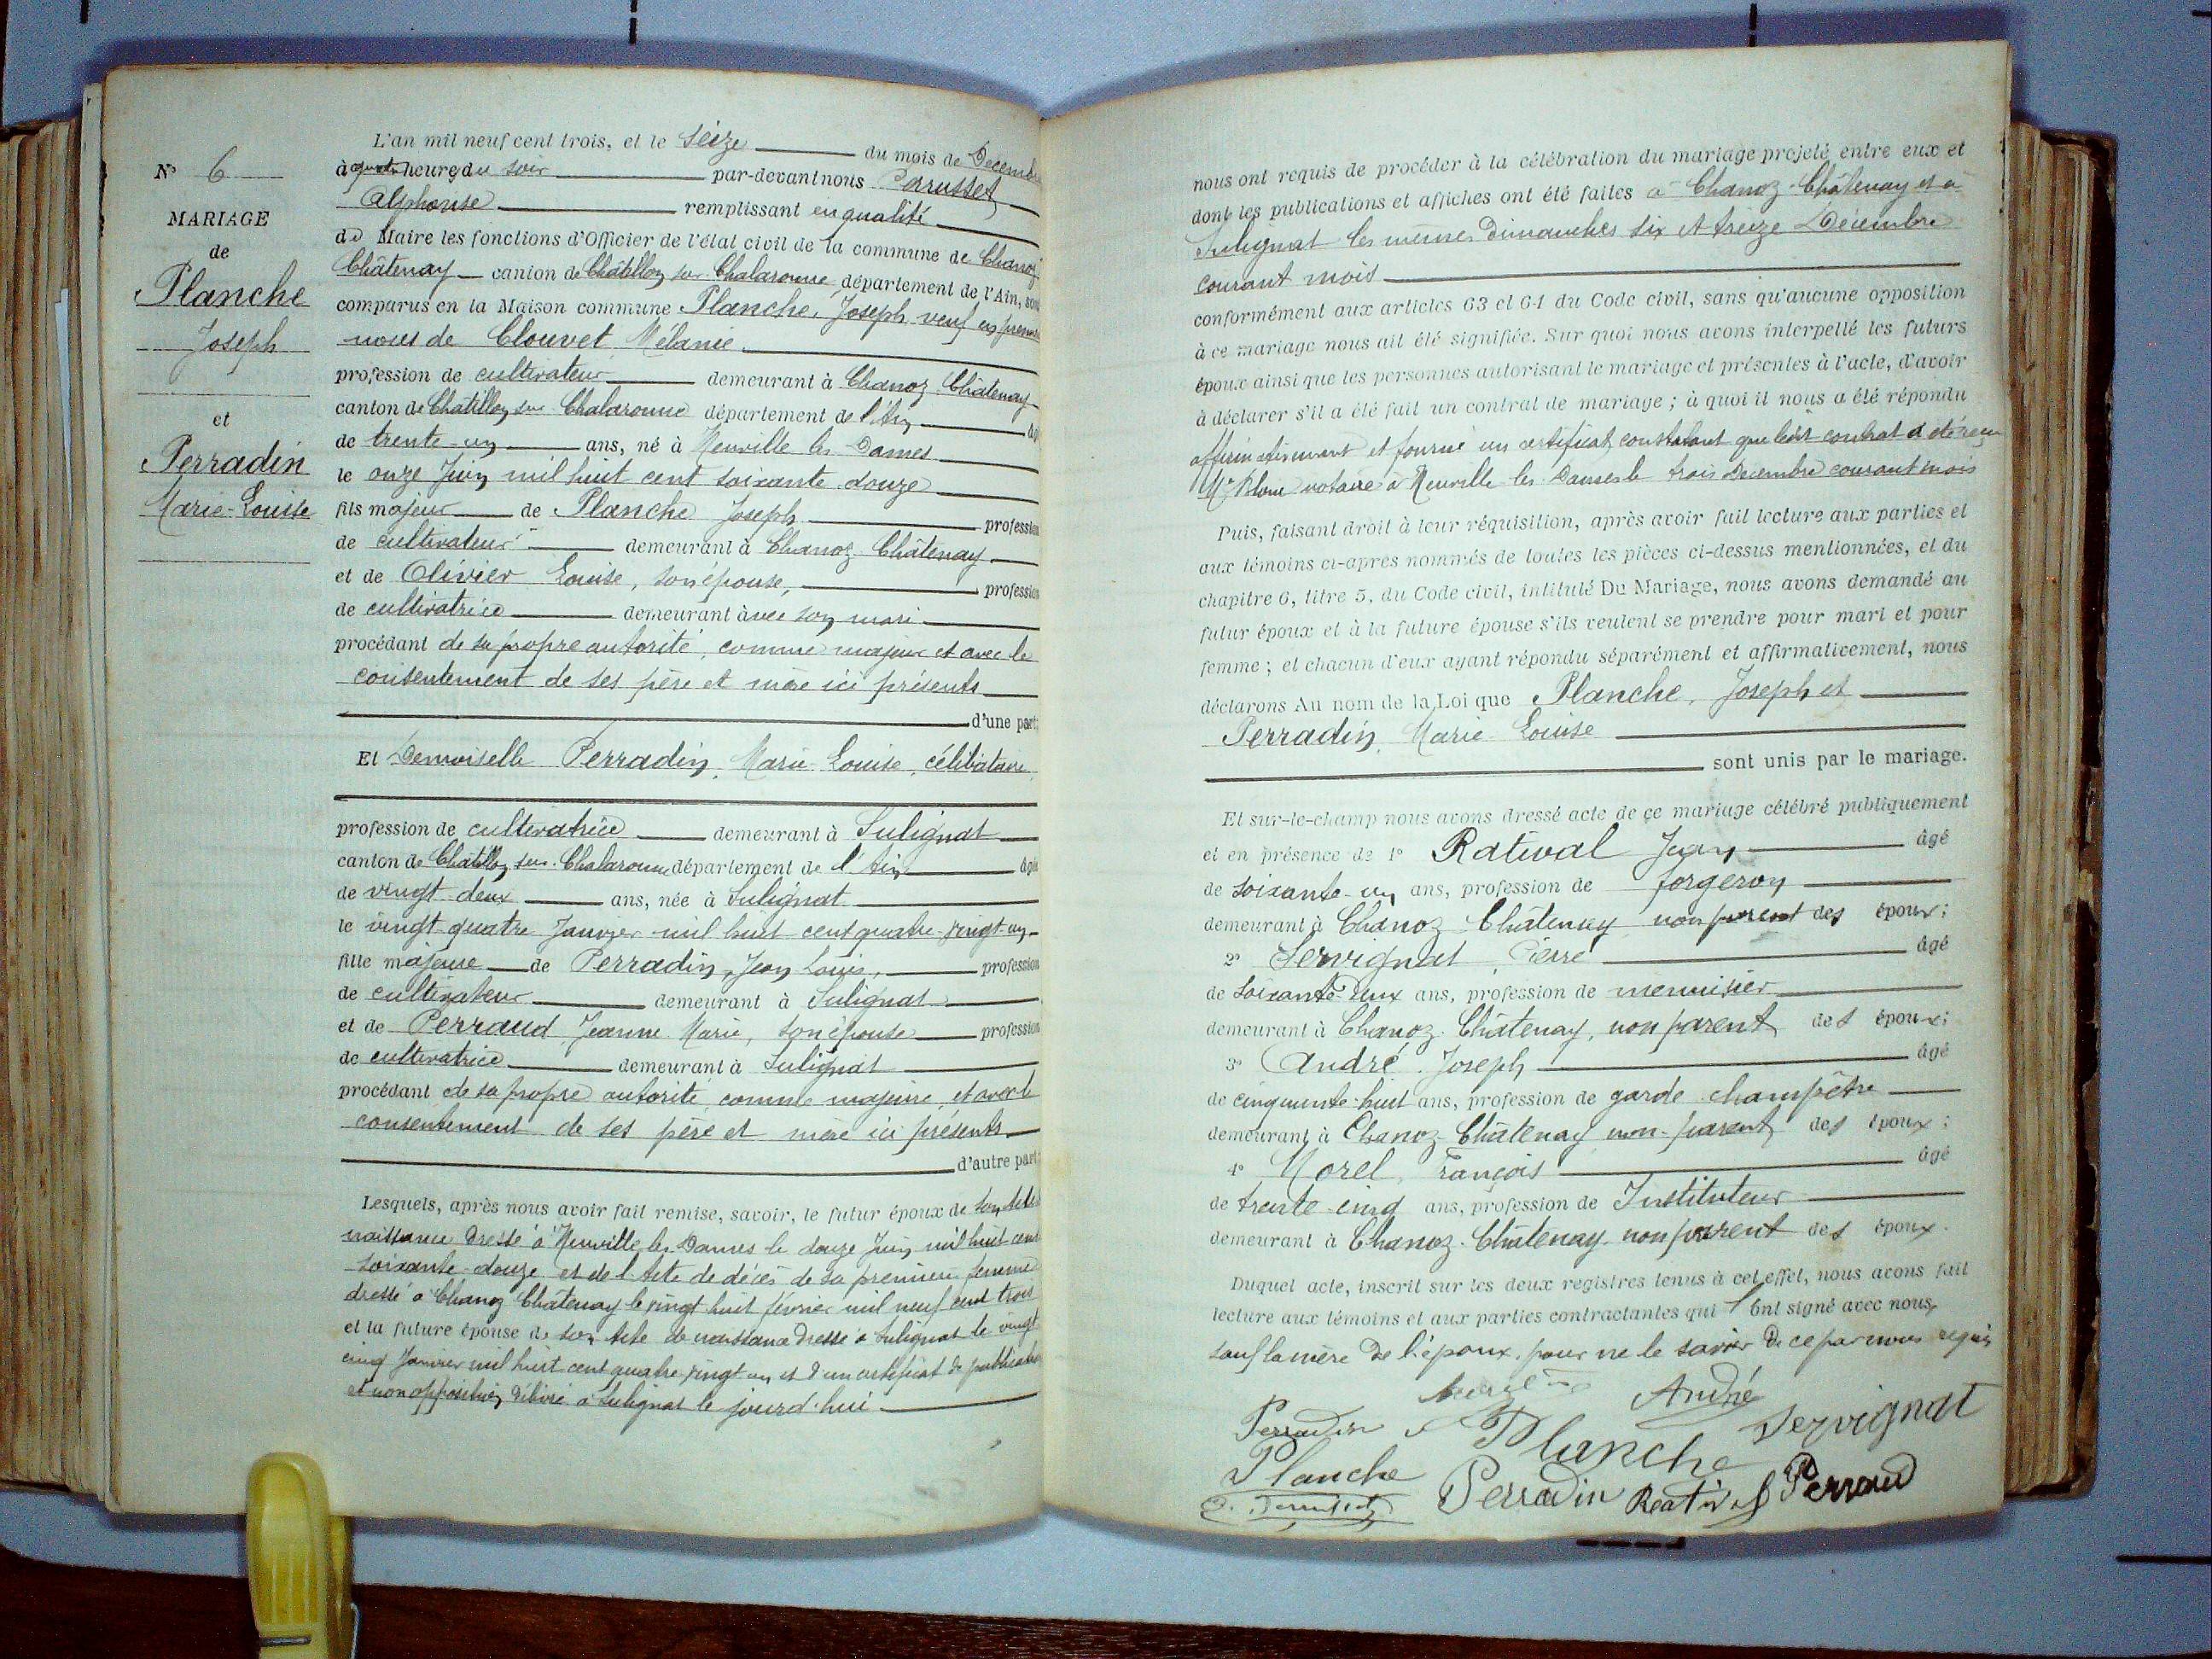 N° 6
MARIAGE
de
Planche
Joseph
et
Perradin
Marie-Louise
L'an mil neuf cent trois, et le seize du mois de Décembre
à quatre heures du soir par-devant nous Perrusset
Alphonse remplissant en qualité
de Maire les fonctions d'Officier de l'état civil de la commune de Chanoz
Châtenay canton de Châtillon sur Chalaronne département de l'Ain, sont
comparus en la Maison commune Planche, Joseph veuf en premières
noces de Clouvet Mélanie
profession de cultivateur demeurant à Chanoz-Châtenay
canton de Châtillon sur Chalaronne département de l'Ain âgé
de trente-un ans, né à Neuville les Dames
le onze Juin mil huit cent soixante douze
fils majeur de Planche Joseph profession
de cultivateur demeurant à Chanoz-Châtenay
et de Olivier Louise, son épouse, profession
de cultivatrice demeurant avec son mari
procédant de sa propre autorité, comme majeur et avec le
consentement de ses père et mère ici présents
d'une part;
Et Demoiselle Perradin, Marie-Louise, célibataire,
profession de cultivatrice demeurant à Sulignat
canton de Châtillon sur Chalaronne département de l'Ain âgée
de vingt-deux ans, née à Sulignat
le vingt-quatre Janvier mil huit cent quatre-vingt-un
fille majeure de Perradin, Jean Louis, profession
de cultivateur demeurant à Sulignat
et de Perraud Jeanne Marie, son épouse profession
de cultivatrice demeurant à Sulignat
procédant de sa propre autorité, comme majeure, et avec le
consentement de ses père et mère ici présents
d'autre part;
Lesquels, après nous avoir fait remise, savoir, le futur époux de son acte de
naissance dressé à Neuville les Dames le douze Juin mil huit cent
soixante-douze et de l'acte de décès de sa première femme
dressé à Chanoz Châtenay le vingt huit février mil neuf cent trois
et la future épouse de son acte de naissance dressé à Sulignat le vingt
cinq Janvier mil huit cent quatre vingt un et d'un certificat de publication
et non opposition délivré à Sulignat le jourd'hui
nous ont requis de procéder à la célébration du mariage projeté entre eux et
dont les publications et affiches ont été faites à Chanoz-Châtenay et à
Sulignat les mêmes Dimanches six et treize Décembre
courant mois
conformément aux articles 63 et 64 du Code civil, sans qu'aucune opposition
à ce mariage nous ait été signifiée. Sur quoi nous avons interpellé les futurs
époux ainsi que les personnes autorisant le mariage et présentes à l'acte, d'avoir
à déclarer s'il a été fait un contrat de mariage; à quoi il nous a été répondu
affirmativement et fourni un certificat constatant que leur contrat a été reçu
Me notaire à Neuville les Dames le trois Décembre courant mois
Puis, faisant droit à leur réquisition, après avoir fait lecture aux parties et
aux témoins ci-après nommés de toutes les pièces ci-dessus mentionnées, et du
chapitre 6, titre 5, du Code civil, intitulé Du Mariage, nous avons demandé au
futur époux et à la future épouse s'ils veulent se prendre pour mari et pour
femme; et chacun d'eux ayant répondu séparément et affirmativement, nous
déclarons Au nom de la Loi que Planche, Joseph et
Perradin, Marie Louise
sont unis par le mariage.
Et sur-le-champ nous avons dressé acte de ce mariage célébré publiquement
et en présence de 1° Ratival Jean âgé
de soixante-un ans, profession de forgeron
demeurant à Chanoz-Châtenay non parent des époux;
2° Servignat, Pierre âgé
de soixante-deux ans, profession de menuisier
demeurant à Chanoz-Châtenay, non parent des époux;
3° André Joseph âgé
de cinquante-huit ans, profession de garde champêtre
demeurant à Chanoz-Châtenay non-parent des époux;
4° Morel, François âgé
de trente-cinq ans, profession de Instituteur
demeurant à Chanoz-Châtenay non parent des époux.
Duquel acte, inscrit sur les deux registres tenus à cet effet, nous avons fait
lecture aux témoins et aux parties contractantes qui l'ont signé avec nous,
sauf la mère de l'époux, pour ne le savoir de ce par nous requis
André
Perradin Planche Servignat
Planche Perradin Perraud